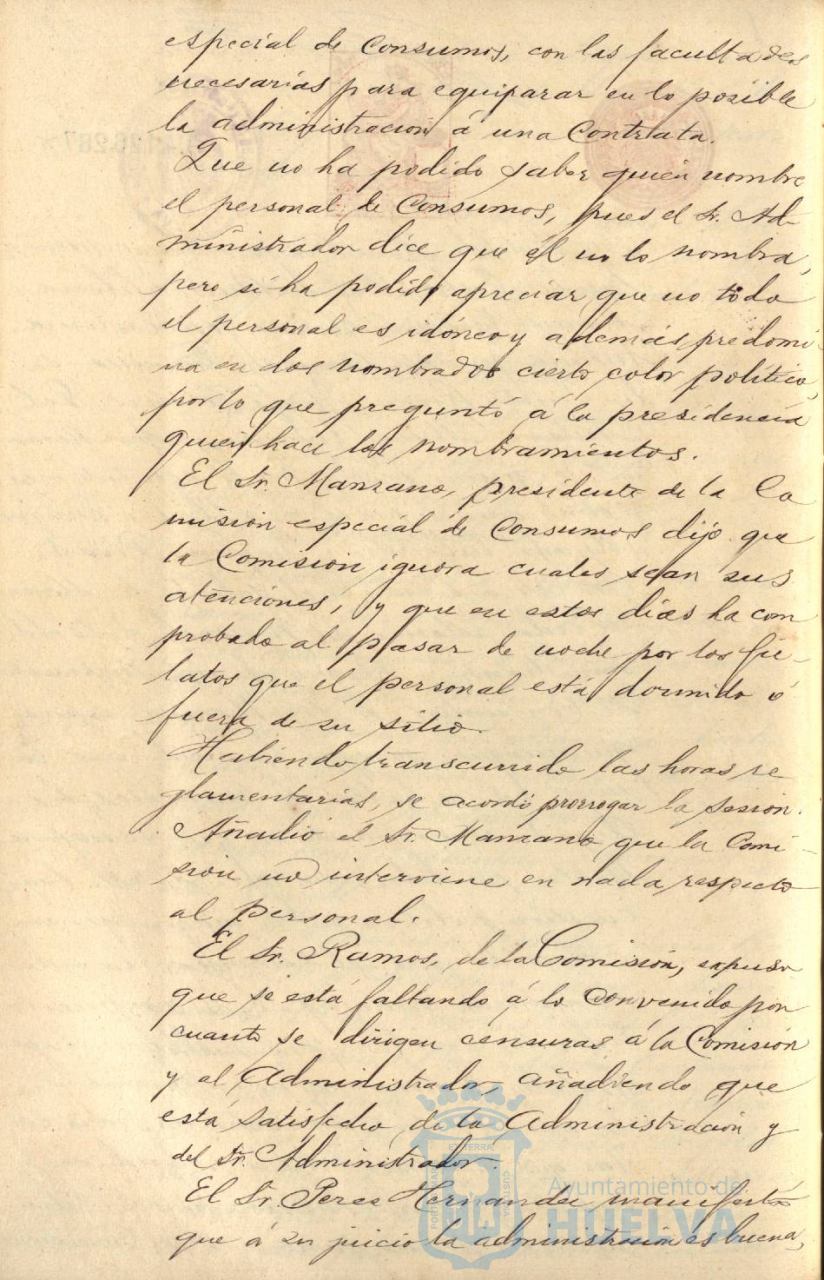 especial de Consumos, con las facultades
necesarias para equiparar en lo posible
la administracion á una Contrata.
Que no ha podido saber quien nombre
el personal de Consumos, pues el Sr. Ad-
ministrador dice que él no lo nombra,
pero si ha podido apreciar que no todo
el personal es idóneo y además predomi-
na en los nombrados cierto color político,
por lo que preguntó á la presidencia
quien hace los nombramientos.
El Sr. Manzano, presidente de la Co
misión especial de Consumos dijo que
la Comisión ignora cuales sean sus
atenciones, y que en estos dias ha com
probado al pasar de noche por los fie-
latos que el personal está dormido ó
fuera de su sitio.
Habiendo transcurrido las horas re
glamentarias, se acordó prorrogar la sesión.
Añadió el Sr. Manzano que la Comi-
sión no interviene en nada respecto
al personal.
El Sr. Ramos, de la Comisión, expuso
que se está faltando á lo convenido por
cuanto se dirigen censuras á la Comisión
y al Administrador, añadiendo que
está satisfecho de la Administración y
del Sr. Administrador.
El Sr. Perez Hernandez manifestó
que á su juicio la administración es buena,
Ayuntamiento de
HUELVA